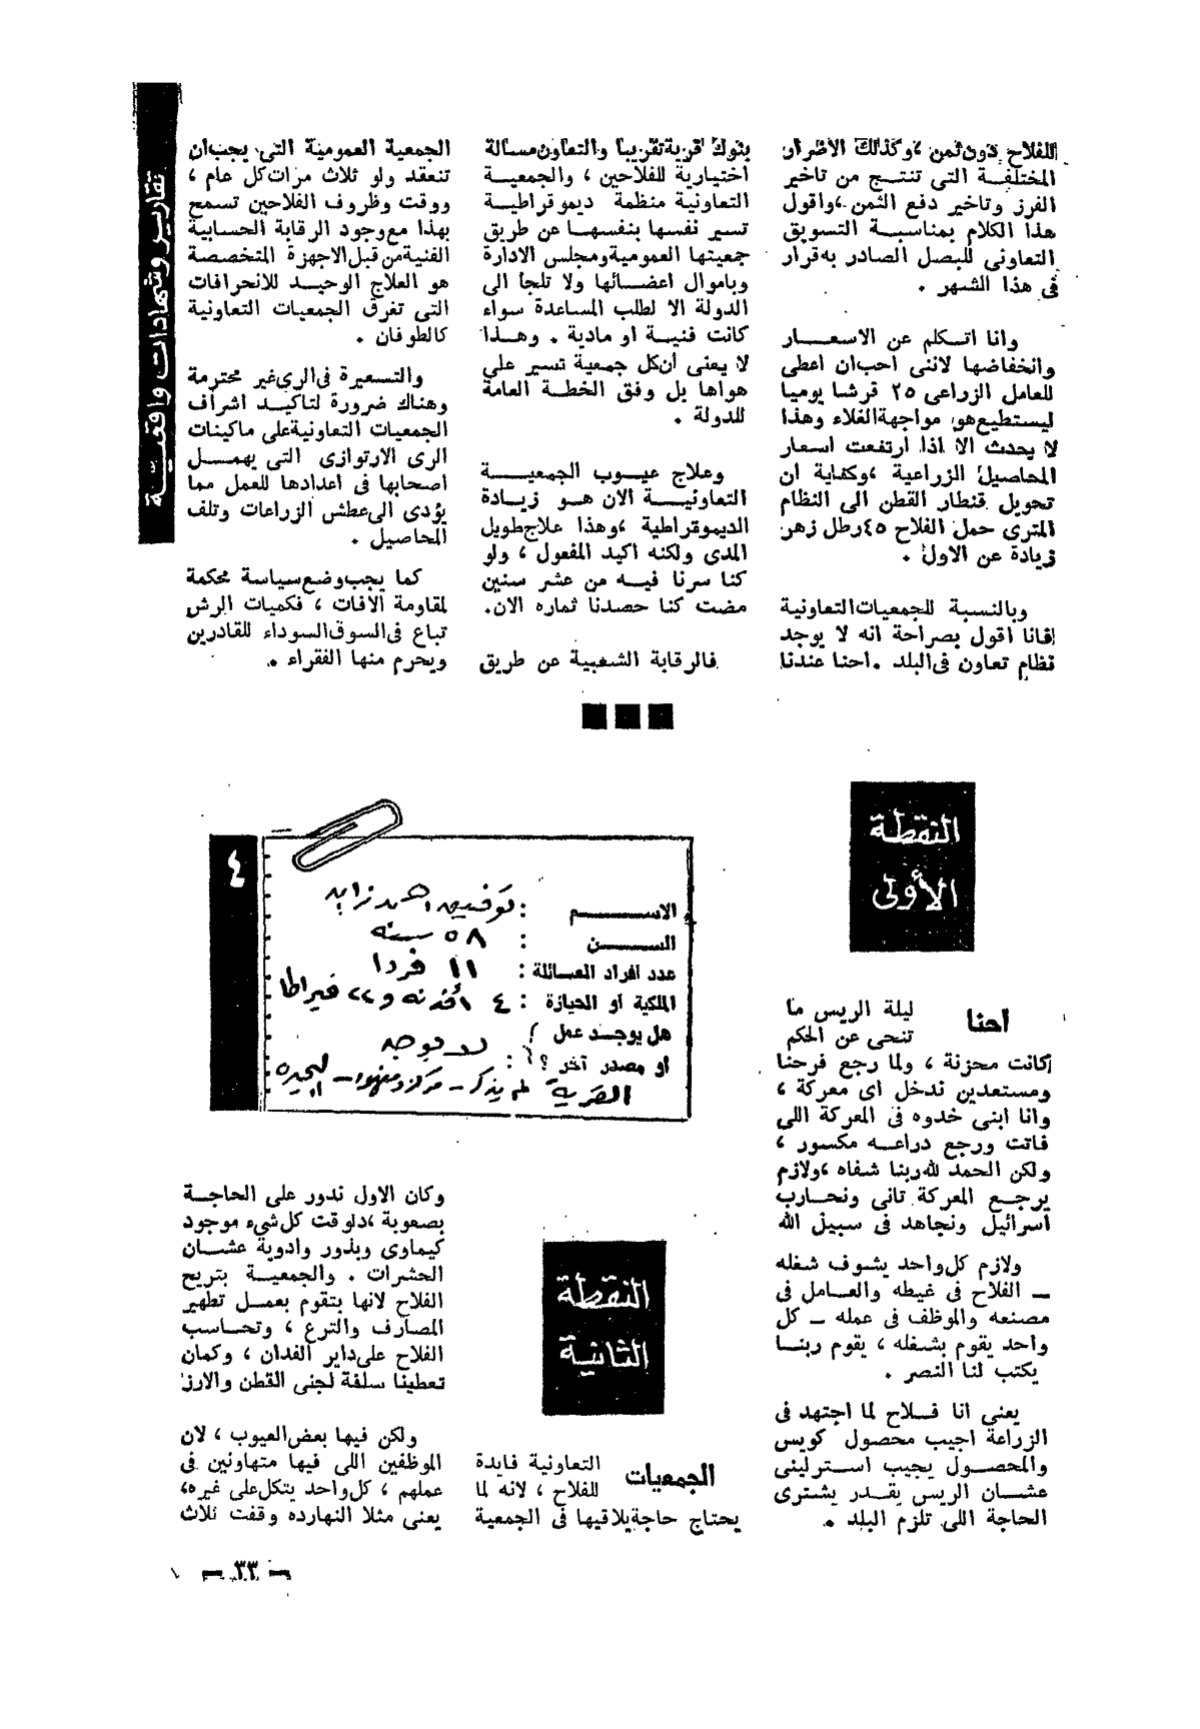 تقارير وشهادات واقعية
للفلاح دون ثمن ، وكذلك الاضرار
المختلفة التى تنتج من تاخير
الفرز وتاخير دفع الثمن ، واقول
هذا الكلام بمناسبة التسويق
التعاونى للبصل الصادر به قرار
فى هذا الشهر .
وانا اتكلم عن الاسعار
وانخفاضها لاننى احب ان اعطى
للعامل الزراعى ٢٥ قرشا يوميا
ليستطيع هو مواجهة الغلاء وهذا
لا يحدث الا اذا ارتفعت اسعار
المحاصيل الزراعية ، وكفاية ان
تحويل قنطار القطن الى النظام
المترى حمل الفلاح ٤٥ رطل زهر
زيادة عن الاول .
وبالنسبة للجمعيات التعاونية
فانا اقول بصراحة انه لا يوجد
نظام تعاون فى البلد . احنا عندنا
بنوك قرية تقريبا والتعاون مسالة
اختيارية للفلاحين ، والجمعية
التعاونية منظمة ديموقراطية
تسير نفسها بنفسها عن طريق
جمعيتها العمومية ومجلس الادارة
وباموال اعضائها ولا تلجأ الى
الدولة الا لطلب المساعدة سواء
كانت فنية او مادية . وهذا
لا يعنى أن كل جمعية تسير على
هواها بل وفق الخطة العامة
للدولة .
وعلاج عيوب الجمعية
التعاونية الان هو زيادة
الديموقراطية ، وهذا علاج طويل
المدى ولكنه اكيد المفعول ، ولو
كنا سرنا فيه من عشر سنين
مضت كنا حصدنا ثماره الان .
فالرقابة الشعبية عن طريق
الجمعية العمومية التى يجب ان
تنعقد ولو ثلاث مرات كل عام ،
ووقت وظروف الفلاحين تسمح
بهذا مع وجود الرقابة الحسابية
الفنية من قبل الاجهزة المتخصصة
هو العلاج الوحيد للانحرافات
التى تغرق الجمعيات التعاونية
كالطوفان .
والتسعيرة فى الرى غير محترمة
وهناك ضرورة لتاكيد اشراف
الجمعيات التعاونية على ماكينات
الرى الارتوازى التى يهمل
اصحابها فى اعدادها للعمل مما
يؤدى الى عطش الزراعات وتلف
المحاصيل .
كما يجب وضع سياسة محكمة
لمقاومة الافات ، فكميات الرش
تباع فى السوق السوداء للقادرين
ويحرم منها الفقراء .
٤
الاسم : توفيق احمد زايد
السن : ٥٨ سنه
عدد افراد العائلة : ١١ فردا
الملكية أو الحيازة : ٤ أفدنه و ٢٢ قيراطا
هل يوجد عمل
أو مصدر آخر ؟ : لا يوجد
القرية لم يذكر - مركز دمنهور - البحيره
النقطة
الأولى
احنا ليلة الريس ما
تنحى عن الحكم
كانت محزنة ، ولما رجع فرحنا
ومستعدين ندخل اى معركة ،
وانا ابنى خدوه فى المعركة اللى
فاتت ورجع دراعه مكسور ،
ولكن الحمد لله ربنا شفاه ، ولازم
يرجع المعركة تانى ونحارب
اسرائيل ونجاهد فى سبيل الله
ولازم كل واحد يشوف شغله
ــ الفلاح فى غيطه والعامل فى
مصنعه والموظف فى عمله ــ كل
واحد يقوم بشغله ، يقوم ربنا
يكتب لنا النصر .
يعنى انا فلاح لما اجتهد فى
الزراعة اجيب محصول كويس
والمحصول يجيب استرلينى
عشان الريس يقدر يشترى
الحاجة اللى تلزم البلد .
النقطة
الثانية
الجمعيات التعاونية فايدة
للفلاح ، لانه لما
يحتاج حاجة يلاقيها فى الجمعية
وكان الاول ندور على الحاجة
بصعوبة ، دلوقت كل شىء موجود
كيماوى وبذور وادوية عشان
الحشرات . والجمعية بتريح
الفلاح لانها بتقوم بعمل تطهير
المصارف والترع ، وتحاسب
الفلاح على داير الفدان ، وكمان
تعطينا سلفة لجنى القطن والارز
ولكن فيها بعض العيوب ، لان
الموظفين اللى فيها متهاونين فى
عملهم ، كل واحد يتكل على غيره،
يعنى مثلا النهارده وقفت ثلاث
ــ ٣٣ ــ